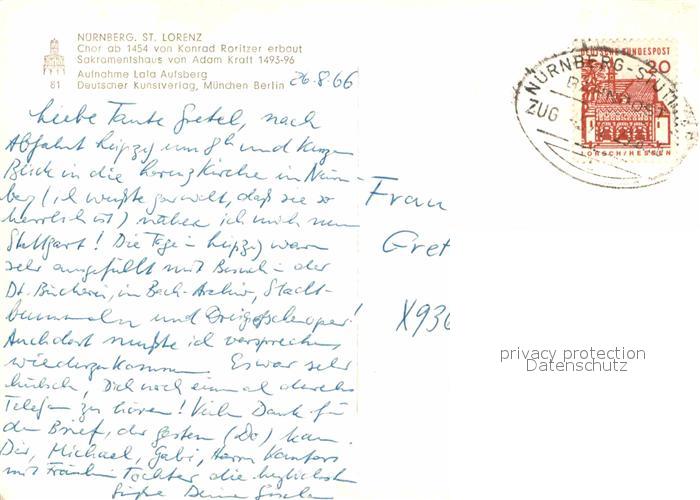 NÜRNBERG. ST. LORENZ
Chor ab 1454 von Konrad Roritzer erbaut
Sakramentshaus von Adam Kraft 1493-96
Aufnahme Lala Aufsberg
81 Deutscher Kunstverlag, München Berlin
26.8.66
Liebe Tante Gretel, nach
Abfahrt Leipzig um 8h und kurzem
Blick in die Lorenzkirche in Nürn-
berg (ich wußte gar nicht, daß sie so
herrlich ist) nähere ich mich nun
Stuttgart! Die Tage in Leipzig waren
sehr ausgefüllt mit Besuch in der
Dt. Bücherei, im Bach-Archiv, Stadt-
bummeln und Dreigroschenoper!
Auch dort mußte ich versprechen
wiederzukommen. Es war sehr
hübsch, Dich noch einmal durchs
Telefon zu hören! Vielen Dank für
den Brief, der gestern (Do) kam.
Dir, Michael, Gabi, Herrn Kantors
mit Fräulein Tochter die herzlichsten
Grüße Deine
Frau
Gret
X936
DEUTSCHE BUNDESPOST
20
LORSCH/HESSEN
NÜRNBERG-STUTTGAR
BAHNPOST
ZUG
privacy protection
Datenschutz